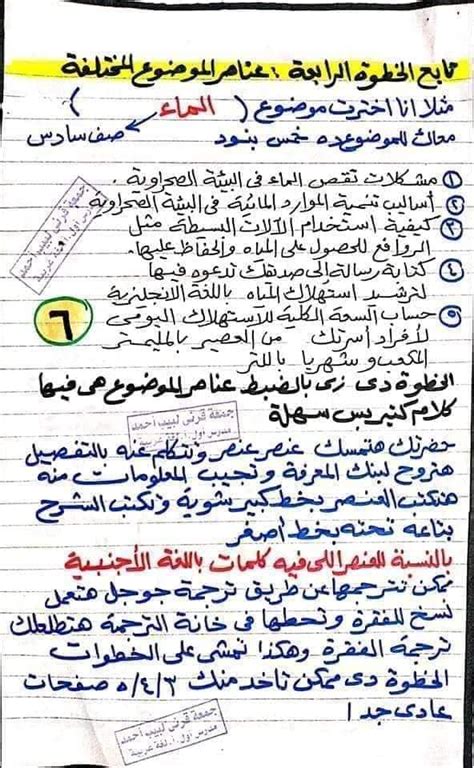 تابع الخطوة الرابعة : عناصر الموضوع المختلفة
مثلا انا اخترت موضوع ( الماء )
معاك للموضوع ده خمس بنود صف سادس
① مشكلات نقص الماء فى البيئة الصحراوية
② أساليب تنمية الموارد المائية فى البيئة الصحراوية
③ كيفية استخدام الآلات البسيطة مثل
الروافع للحصول على المياه والحفاظ عليها.
④ كتابة رسالة إلى صديقك تدعوه فيها
لترشيد استهلاك المياه باللغة الانجلزية
⑤ حساب السعة الكلية للاستهلاك اليومى
لأفراد أسرتك من العصير بالمليمتر
المكعب و شهريا باللتر
٦
الخطوة دى زى بالضبط عناصر الموضوع هى فيها
كلام كتير بس سهلة
حضرتك هتمسك عنصر عنصر وتتكلم عنه بالتفصيل
هتروح لبنك المعرفة وتجيب المعلومات منه
هتكتب العنصر بخط كبير شوية وتكتب الشرح
بتاعه تحته بخط أصغر
بالنسبة للعنصر اللى فيه كلمات باللغة الأجنبية
ممكن تترجمها عن طريق ترجمة جوجل هتعمل
نسخ للفقرة وتحطها فى خانة الترجمة هتطلعلك
ترجمة الفقرة وهكذا تمشى على الخطوات
الخطوة دى ممكن تاخد منك ٥/٤/٣ صفحات
عادى جدا
جمعة قرنى لبيب احمد
مدرس اول أ. لغة عربية
جمعة قرنى لبيب احمد
مدرس اول أ. لغة عربية
جمعة قرنى لبيب احمد
مدرس اول أ. لغة عربية